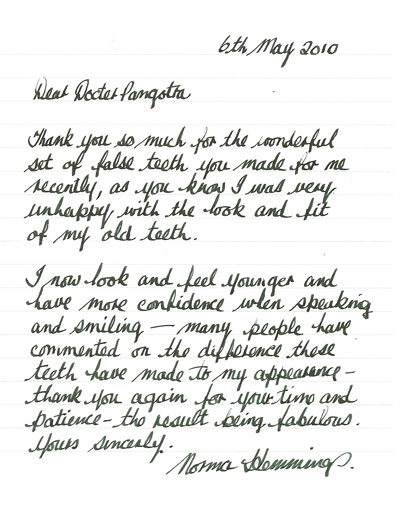 6th May 2010
Dear Docter Pangotra
Thank you so much for the wonderful
set of false teeth you made for me
recently, as you know I was very
unhappy with the look and fit
of my old teeth.
I now look and feel younger and
have more confidence when speaking
and smiling — many people have
commented on the difference these
teeth have made to my appearance –
thank you again for your time and
patience – the result being fabulous.
Yours sincerly.
Norma Hemmings.